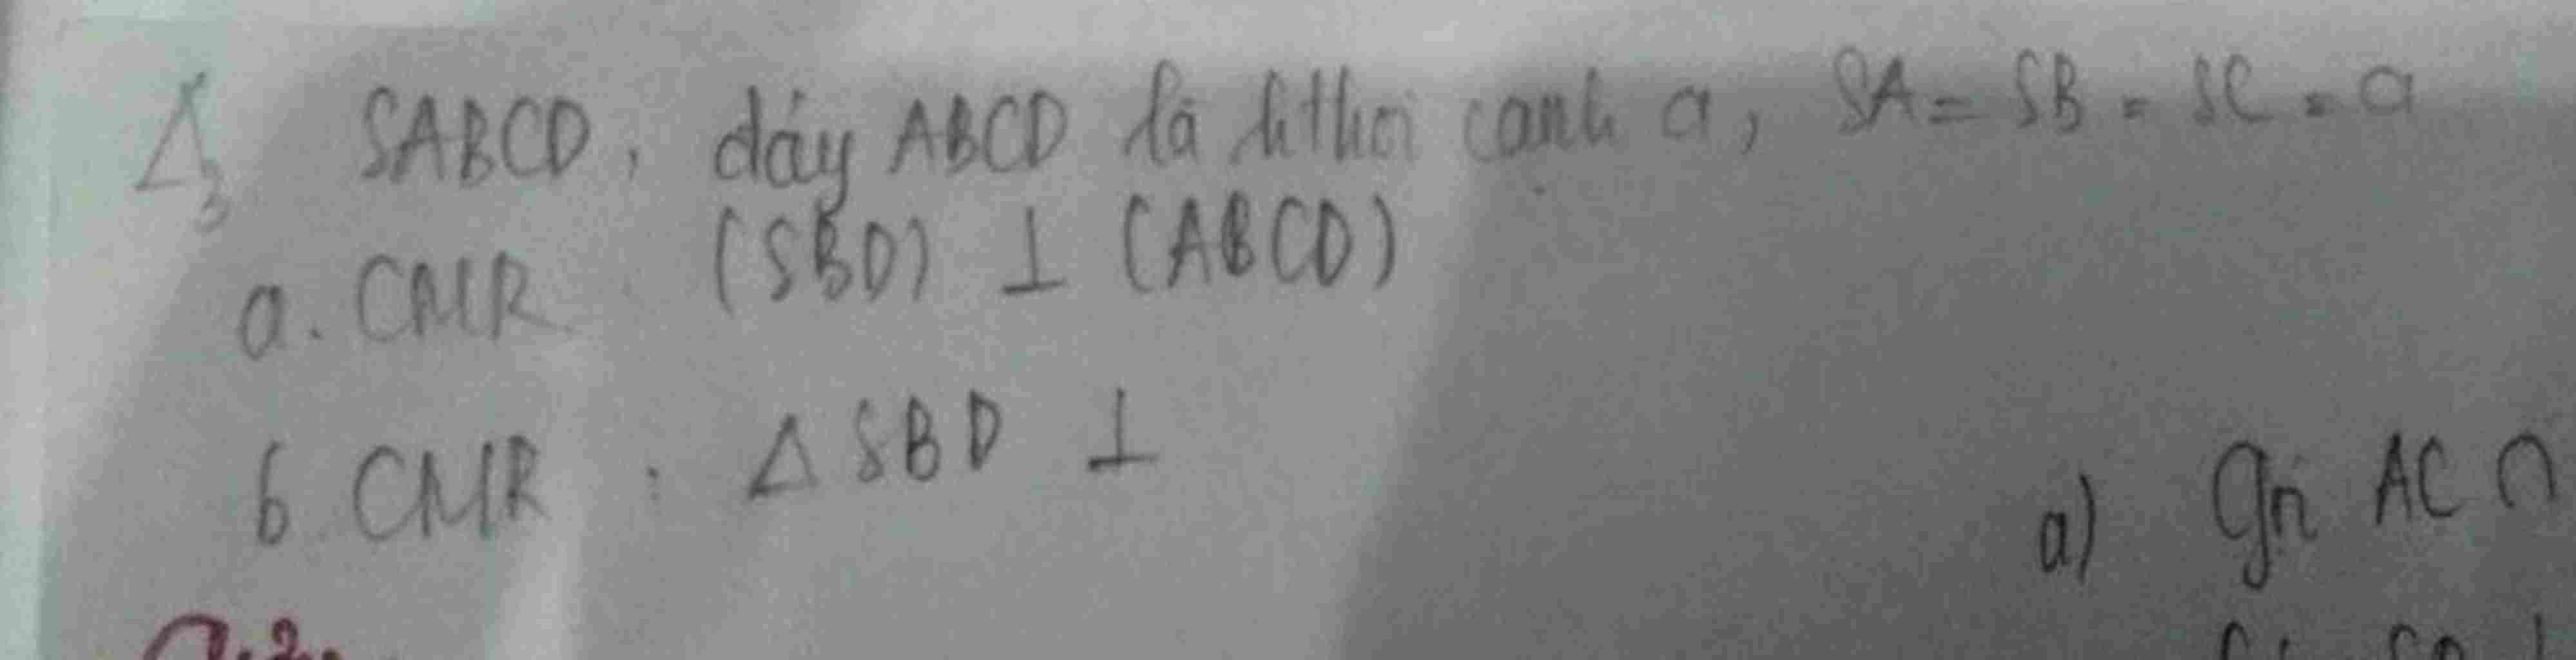 3 SABCD, đáy ABCD là hthoi cạnh a, SA = SB = SC = a
a. CMR (SBD) ⊥ (ABCD)
b. CMR : Δ SBD ⊥
a) Gọi AC ∩